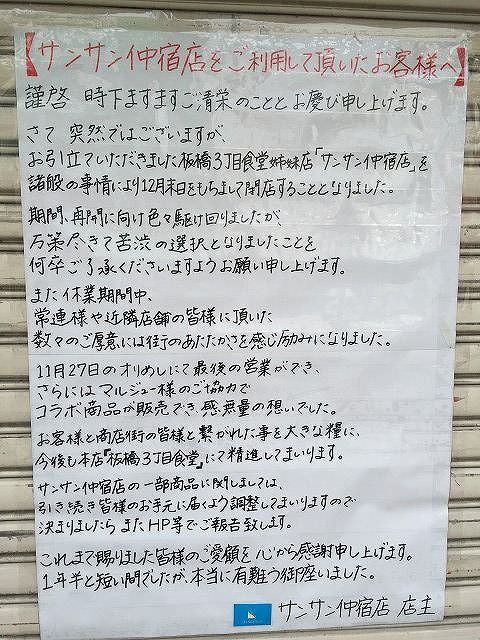 【サンサン仲宿店をご利用して頂いたお客様へ】
謹啓 時下ますますご清栄のこととお慶び申し上げます。
さて 突然ではございますが、
お引立ていただきました板橋3丁目食堂姉妹店「サンサン仲宿店」を
諸般の事情により12月末日をもちまして閉店することとなりました。
期間、再開に向け色々駆け回りましたが、
万策尽きて苦渋の選択となりましたことを
何卒ご了承くださいますようお願い申し上げます。
また休業期間中、
常連様や近隣店舗の皆様に頂いた
数々のご厚意には街のあたたかさを感じ励みになりました。
11月27日のオリめしにて最後の営業ができ、
さらにはマルジュー様のご協力で
コラボ商品が販売でき、感無量の想いでした。
お客様と商店街の皆様と繋がれた事を大きな糧に、
今後も本店「板橋3丁目食堂」にて精進してまいります。
サンサン仲宿店の一部商品に関しましては、
引き続き皆様のお手元に届くよう調整してまいりますので
決まりましたら またHP等でご報告致します。
これまで賜りました皆様のご愛顧を心から感謝申し上げます。
1年半と短い間でしたが、本当に有難う御座いました。
サンサン仲宿店 店主